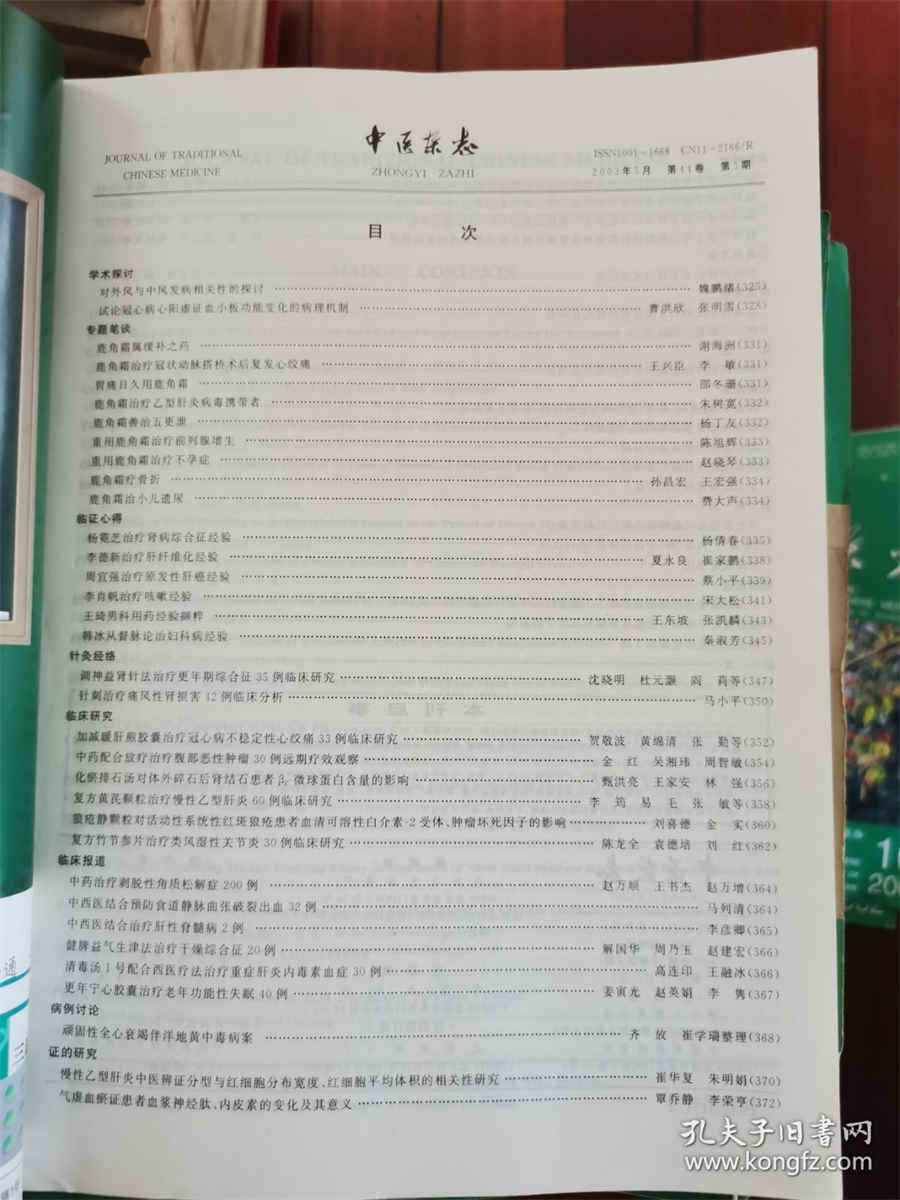 中医杂志
JOURNAL OF TRADITIONAL
CHINESE MEDICINE
ZHONGYI ZAZHI
ISSN1001-1668 CN11-2166/R
2003年5月 第44卷 第5期
目 次
学术探讨
对外风与中风发病相关性的探讨 魏鹏绪(325)
试论冠心病心阳虚证血小板功能变化的病理机制 曹洪欣 张明雪(328)
专题笔谈
鹿角霜属缓补之药 谢海洲(331)
鹿角霜治疗冠状动脉搭桥术后复发心绞痛 王兴臣 李 敏(331)
胃痛日久用鹿角霜 邵冬珊(331)
鹿角霜治疗乙型肝炎病毒携带者 朱树宽(332)
鹿角霜善治五更泄 杨丁友(332)
重用鹿角霜治疗前列腺增生 陈旭辉(333)
重用鹿角霜治疗不孕症 赵晓琴(333)
鹿角霜疗骨折 孙昌宏 王宏强(334)
鹿角霜治小儿遗尿 费大声(334)
临证心得
杨霓芝治疗肾病综合征经验 杨倩春(335)
李德新治疗肝纤维化经验 夏永良 崔家鹏(338)
周宜强治疗原发性肝癌经验 蔡小平(339)
李肖帆治疗咳嗽经验 宋大松(341)
王琦男科用药经验撷粹 王东坡 张凯麟(343)
韩冰从督脉论治妇科病经验 秦淑芳(345)
针灸经络
调神益肾针法治疗更年期综合征35例临床研究 沈晓明 杜元灏 阎 莉等(347)
针刺治疗痛风性肾损害42例临床分析 马小平(350)
临床研究
加减暖肝煎胶囊治疗冠心病不稳定性心绞痛33例临床研究 贺敬波 黄绵清 张 勤等(352)
中药配合放疗治疗腹部恶性肿瘤30例远期疗效观察 金 红 吴湘玮 周智敏(354)
化瘀排石汤对体外碎石后肾结石患者β₂-微球蛋白含量的影响 甄洪亮 王家安 林 强(356)
复方黄芪颗粒治疗慢性乙型肝炎60例临床研究 李 筠 易 毛 张 敏等(358)
狼疮静颗粒对活动性系统性红斑狼疮患者血清可溶性白介素-2受体、肿瘤坏死因子的影响 刘喜德 金 实(360)
复方竹节参片治疗类风湿性关节炎30例临床研究 陈龙全 袁德培 刘 红(362)
临床报道
中药治疗剥脱性角质松解症200例 赵万顺 王书杰 赵万增(364)
中西医结合预防食道静脉曲张破裂出血32例 马列清(364)
中西医结合治疗肝性脊髓病2例 李彦卿(365)
健脾益气生津法治疗干燥综合征20例 解国华 周乃玉 赵建宏(366)
清毒汤1号配合西医疗法治疗重症肝炎内毒素血症30例 高连印 王融冰(366)
更年宁心胶囊治疗老年功能性失眠40例 姜寅光 赵英娟 李 隽(367)
病例讨论
顽固性全心衰竭伴洋地黄中毒病案 齐 放 崔学瑞整理(368)
证的研究
慢性乙型肝炎中医辨证分型与红细胞分布宽度、红细胞平均体积的相关性研究 崔华复 朱明娟(370)
气虚血瘀证患者血浆神经肽、内皮素的变化及其意义 覃乔静 李荣亨(372)
孔夫子旧书网
www.kongfz.com